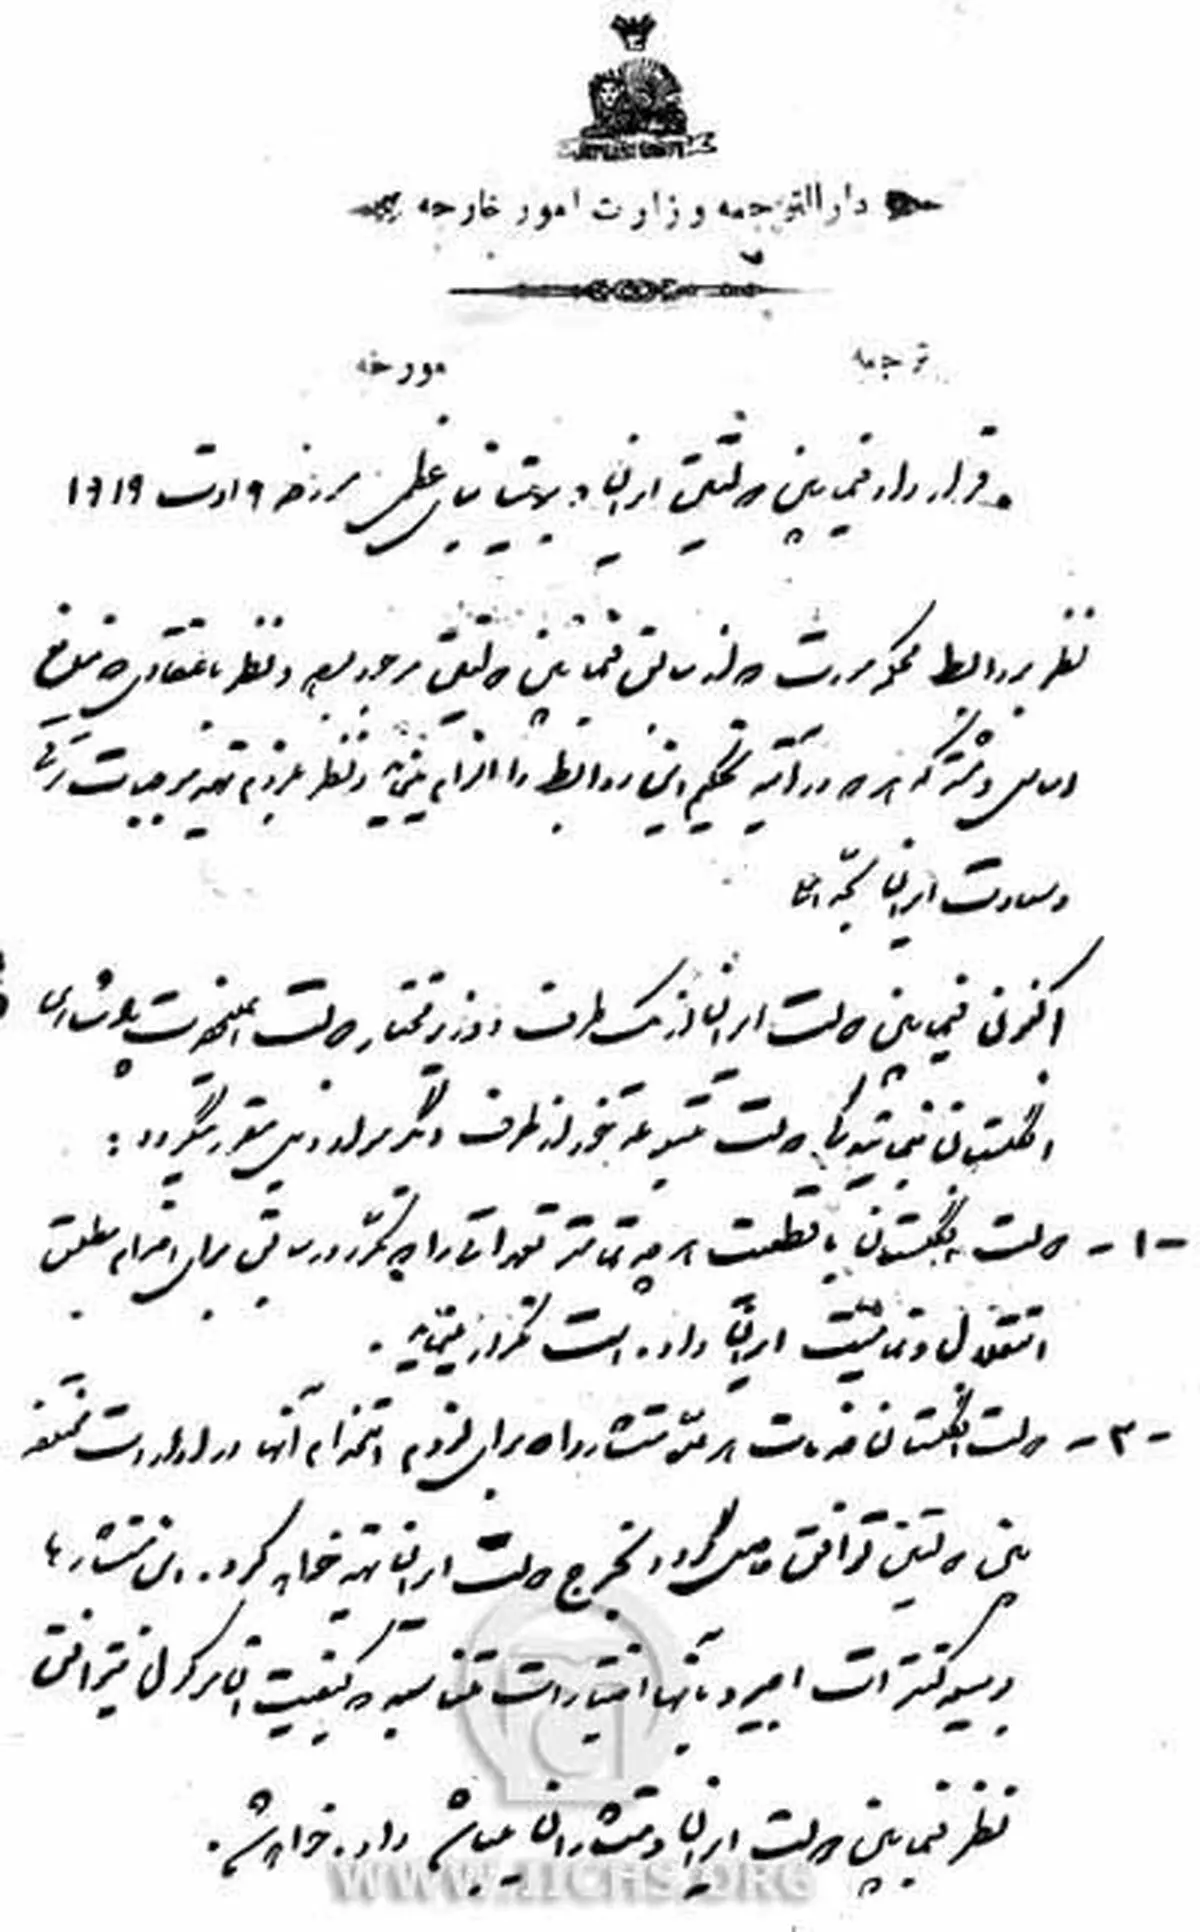 دارالترجمه وزارت امور خارجه
ترجمه مورخه
قرارداد فیمابین دولتین ایران و بریتانیای عظمی مورخه ۹ اوت ۱۹۱۹
نظر بروابط محکمه مودت که از سابق فیمابین دولتین موجود بوده و نظر باعتقاد باینکه منافع
اساسی و مشترک هر دو در آتیه تحکیم این روابط را الزام مینماید و نظر بلزوم تهیه موجبات ترقی
و سعادت ایران بحد اعلا
اکنون فیمابین دولت ایران از یک طرف و وزیر مختار دولت اعلیحضرت پادشاه
انگلستان بنمایندگی دولت متبوعه خود از طرف دیگر مواد ذیل مقرر میگردد :
-۱- دولت انگلستان با قطعیت هر چه تمامتر تعهداتی را که مکرر در سابق برای احترام مطلق
استقلال و تمامیت ایران داده است تکرار مینماید .
-۲- دولت انگلستان خدمات هر عده مستشار را که برای لزوم استخدام آنها در ادارات مختلفه
بین دولتین توافق حاصل گردد بخرج دولت ایران تهیه خواهد کرد . این مستشارها
با کنترات اجیر و بآنها اختیارات متناسبه داده کیفیت این اختیارات بسته بتوافق
نظر فیمابین دولت ایران و مستشاران خواهد بود .
WWW.IICHS.ORG